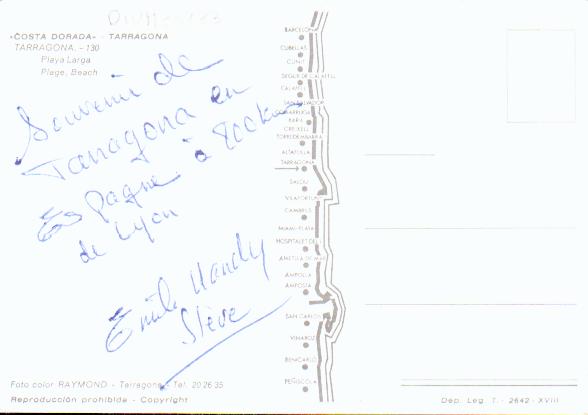 «COSTA DORADA» - TARRAGONA
TARRAGONA. - 130
Playa Larga
Plage, Beach
Souvenir de
Tarragona en
Espagne à 800km
de Lyon
Emile Mandy
Steve
BARCELONA
CUBELLAS
CUNIT
SEGUR DE CALAFELL
CALAFELL
SAN SALVADOR
BARA
CREIXELL
TORREDEMBARRA
ALTAFULLA
TARRAGONA
SALOU
VILAFORTUNY
CAMBRILS
MIAMI-PLAYA
HOSPITALET DEL I.
AMETLLA DE MAR
AMPOLLA
AMPOSTA
SAN CARLOS
VINAROZ
BENICARLO
PEÑISCOLA
Foto color RAYMOND - Tarragona - Tel. 20 26 35
Reproducción prohibida - Copyright
Dep. Leg. T. - 2642 - XVIII